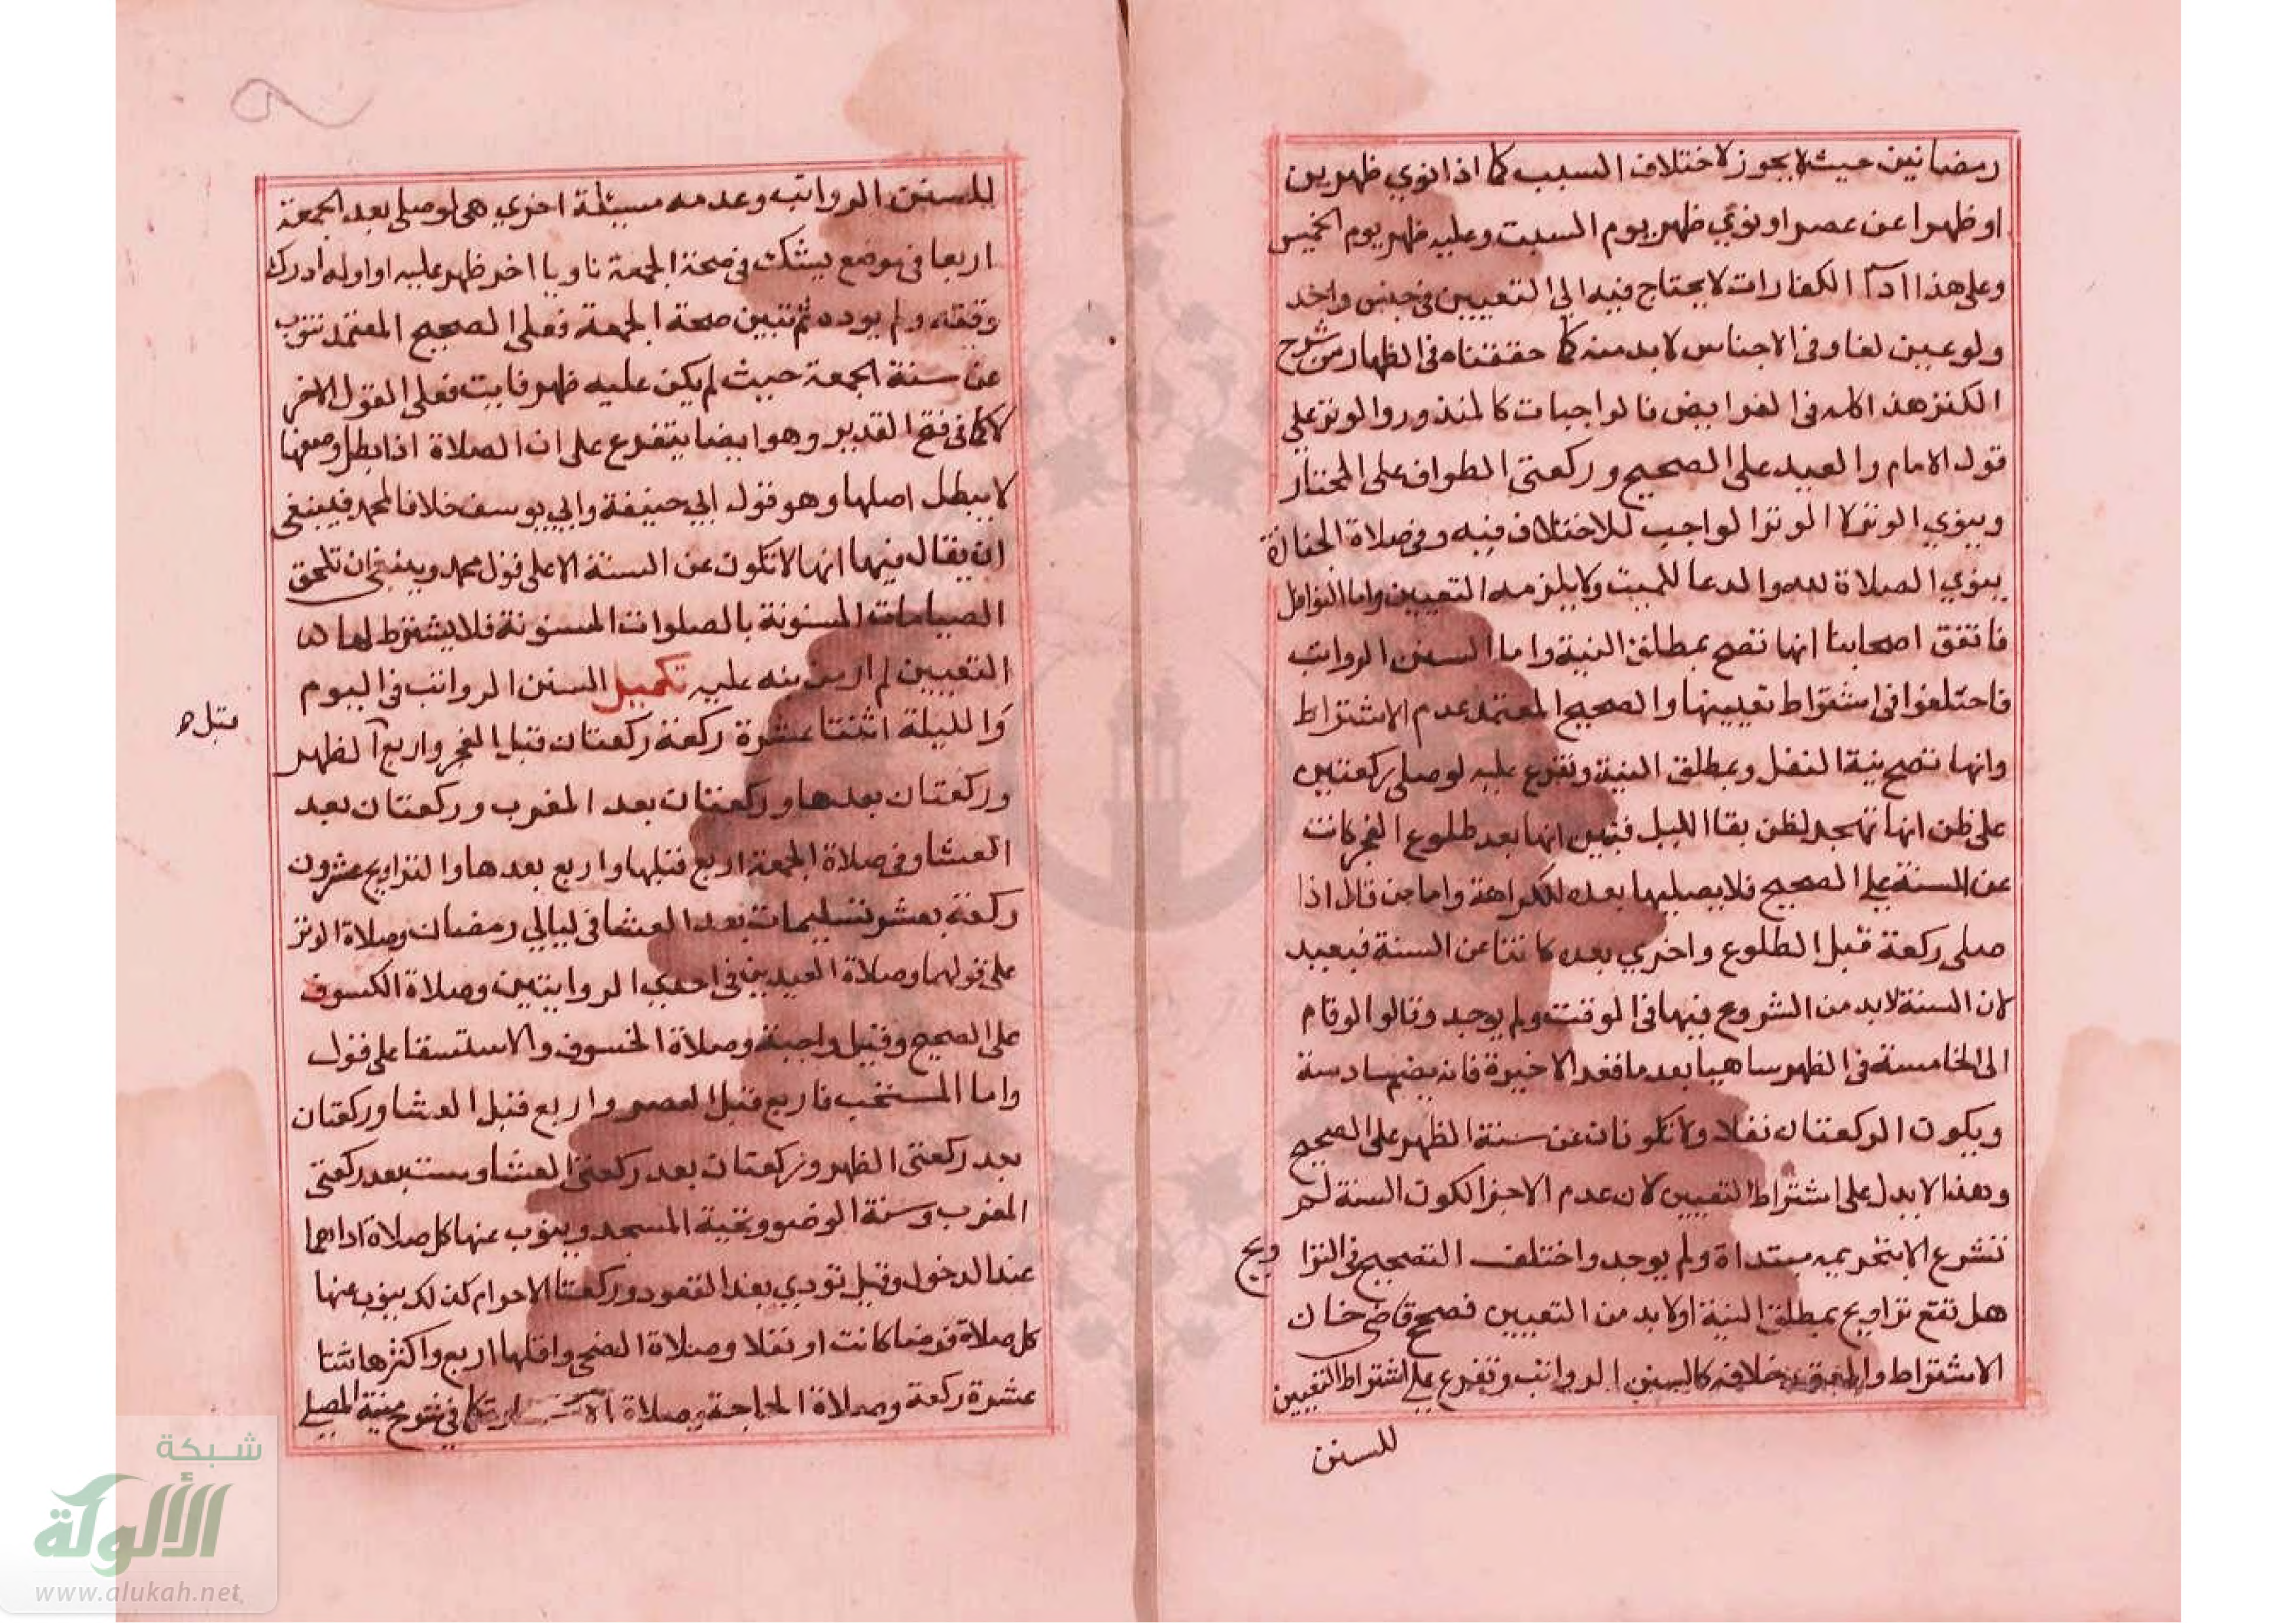 رمضانين حيث لا يجوز لاختلاف السبب كما اذا نوي ظهرين
او ظهرا عن عصر او نوي ظهر يوم السبت وعليه ظهر يوم الخميس
وعلي هذا اداء الكفارات لا يحتاج فيه الي التعيين في جنس واحد
ولو عين لغا وفي الاجناس لا بد منه كما حققناه في الظهار من شرح
الكنز هذا كله في الفرايض نالواجبات كالمنذور والوتر علي
قول الامام والعيد علي الصحيح وركعتي الطواف علي المختار
وينوي الوتر لا الوتر الواجب للاختلاف فيه وفي صلاة الجنازة
ينوي الصلاة لله والدعا للميت ولا يلزمه التعيين واما النوافل
فاتفق اصحابنا انها تصح بمطلق النية واما السنن الرواتب
فاختلفوا في اشتراط تعيينها والصحيح المعتمد عدم الاشتراط
وانها تصح بنية النفل وبمطلق النية وتفرع عليه لو صلي ركعتين
علي ظن انها تهجد لظن بقا الليل فتبين انها بعد طلوع الفجر كانت
عن السنة علي الصحيح فلا يصليها بعده للكراهة واما من قال اذا
صلي ركعة قبل الطلوع واخري بعده كانتا عن السنة فبعيد
لان السنة لا بد من الشروع فيها في الوقت ولم يوجد وقالوا لو قام
الي الخامسة في الظهر ساهيا بعد ما قعد الاخيرة فانه يضم سادسة
ويكون الركعتان نفلا ولا تكونان عن سنة الظهر علي الصحيح
وهذا لا يدل علي اشتراط التعيين لان عدم الاجزا لكون السنة لم
تشرع الا بتحريمه مبتداة ولم يوجد واختلف التصحيح في التراويح
هل تقع تراويح بمطلق النية اولا بد من التعيين فصحح قاضي خان
الاشتراط والمعتمد خلافه كالسنن الرواتب وتفرع علي اشتراط التعيين
للسنن
للسنن الرواتب وعدمه مسيئلة اخري هي لو صلي بعد الجمعة
اربعا في موضع يشك في صحة الجمعة ناويا اخر ظهر عليه او اوله ادرك
وقته ولم يوده ثم تبين صحة الجمعة فعلي الصحيح المعتمد تنوب
عن سنة الجمعة حيث لم يكن عليه ظهر فايت فعلي القول الاخر
لا كما في فتح القدير وهو ايضا يتفرع علي ان الصلاة اذا بطل وصفها
لا يبطل اصلها وهو قول ابي حنيفة وابي يوسف خلافا لمحمد فينبغي
ان يقال فيها انها لا تكون عن السنة الا علي قول محمد وينبغي ان تلحق
الصيامات المسنونة بالصلوات المسنونة فلا يشترط لها
التعيين لم ار من نبه عليه تكميل السنن الرواتب في اليوم
والليلة اثنتا عشرة ركعة ركعتان قبل الفجر واربع الظهر
قبل
وركعتان بعدها وركعتان بعد المغرب وركعتان بعد
العشا وفي صلاة الجمعة اربع قبلها واربع بعدها والتراويح عشرون
ركعة بعشر تسليمات بعد العشا في ليالي رمضان وصلاة الوتر
علي قولهما وصلاة العيدين في احدي الروايتين وصلاة الكسوف
علي الصحيح وقيل واجبة وصلاة الخسوف والاستسقا علي قول
واما المستحب فاربع قبل العصر واربع قبل العشا وركعتان
بعد ركعتي الظهر وركعتان بعد ركعتي العشا وست بعد ركعتي
المغرب وسنة الوضو وتحية المسجد وينوب عنها كل صلاة اداها
عند الدخول وقيل تودي بعد القعود وركعتا الاحرام كذلك ينوب عنها
كل صلاة فرضا كانت او نفلا وصلاة الضحي واقلها اربع واكثرها اثنتا
عشرة ركعة وصلاة الحاجة وصلاة كما في شرح منية المصلي
شبكة
الألوكة
www.alukah.net